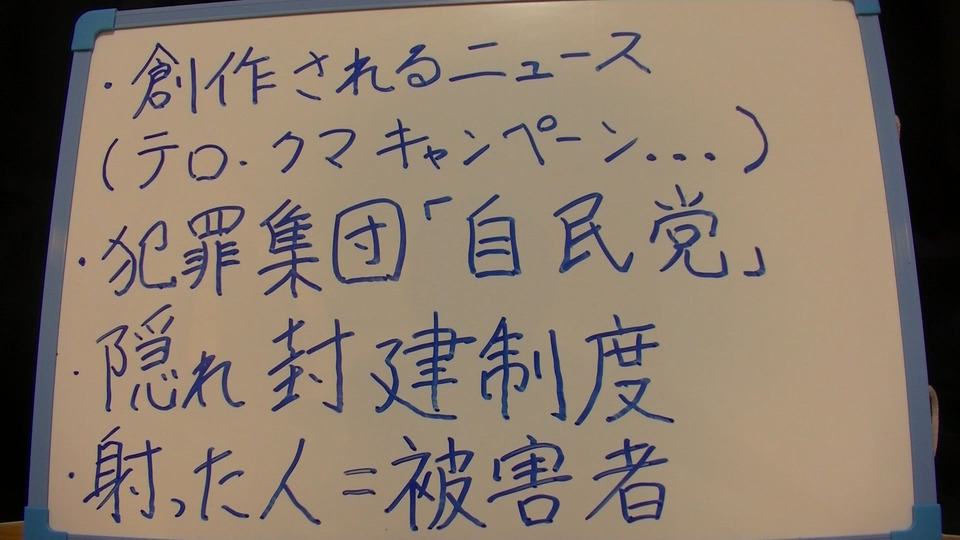 ・創作されるニュース
(テロ・クマキャンペーン...)
・犯罪集団「自民党」
・隠れ封建制度
・射った人=被害者